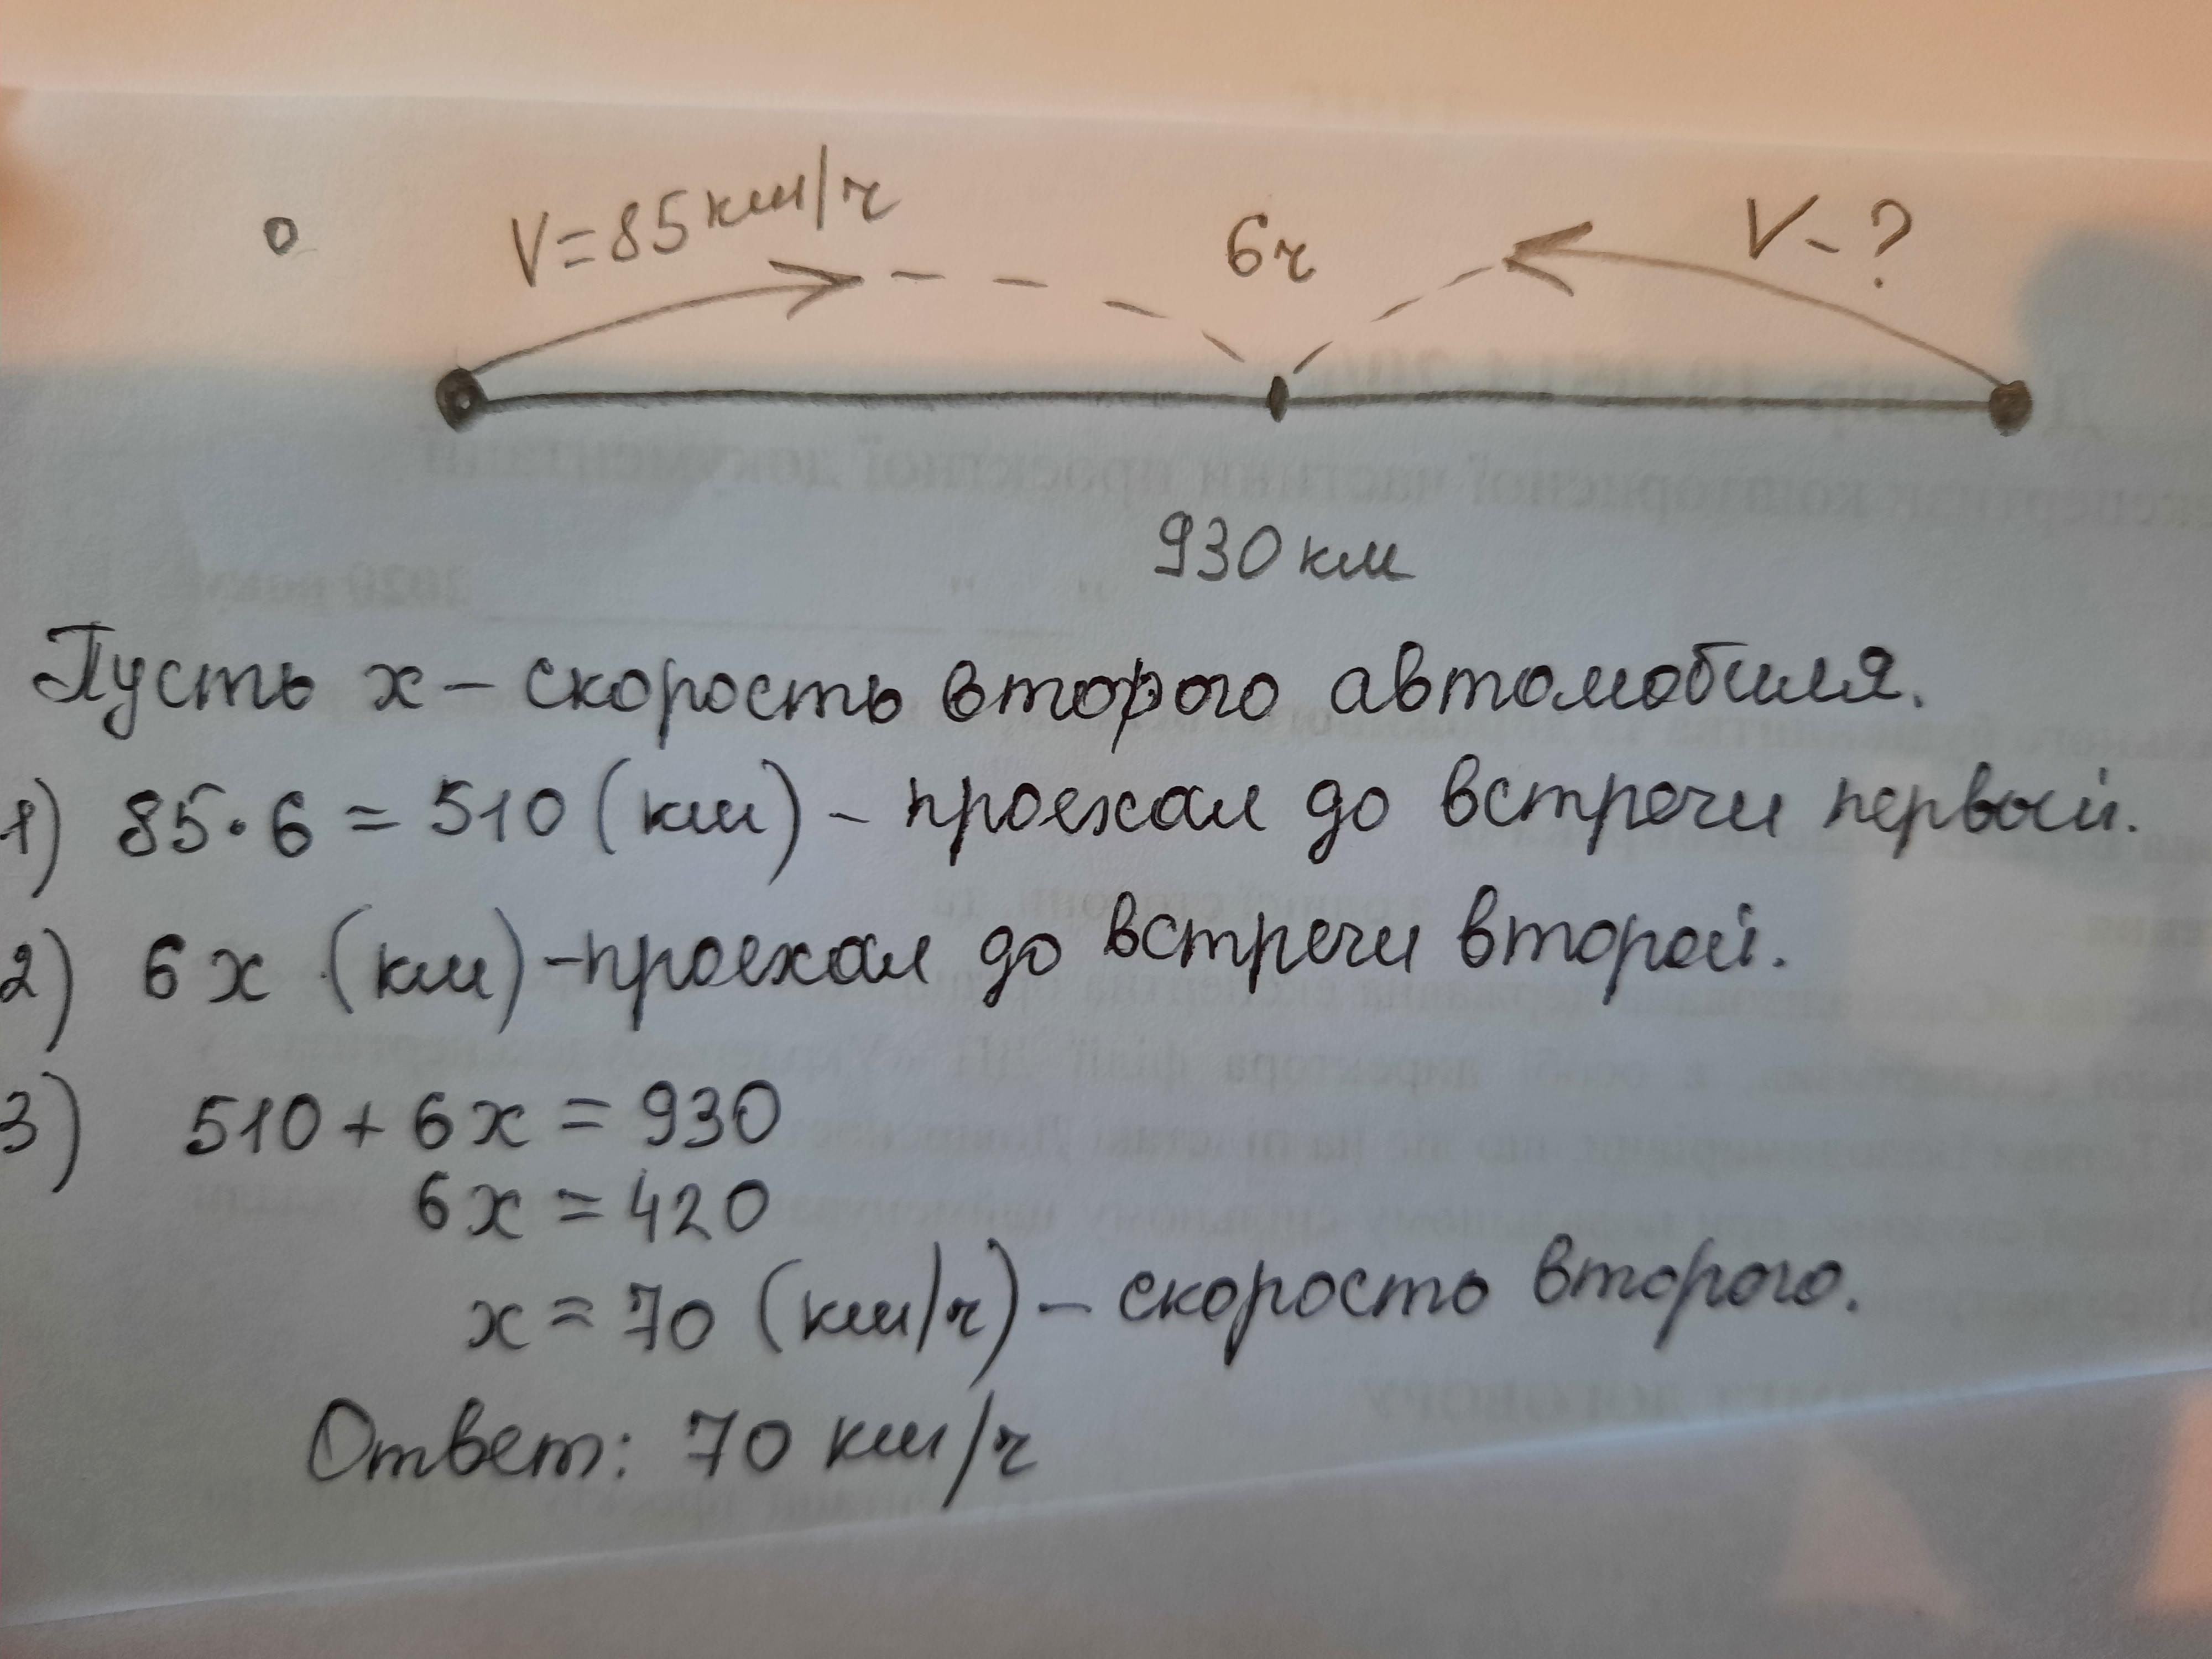 V=85км/ч 6ч V-?
930 км
Пусть x – скорость второго автомобиля.
1) 85·6 = 510 (км) – проехал до встречи первый.
2) 6x (км) – проехал до встречи второй.
3) 510 + 6x = 930
6x = 420
x = 70 (км/ч) – скорость второго.
Ответ: 70 км/ч